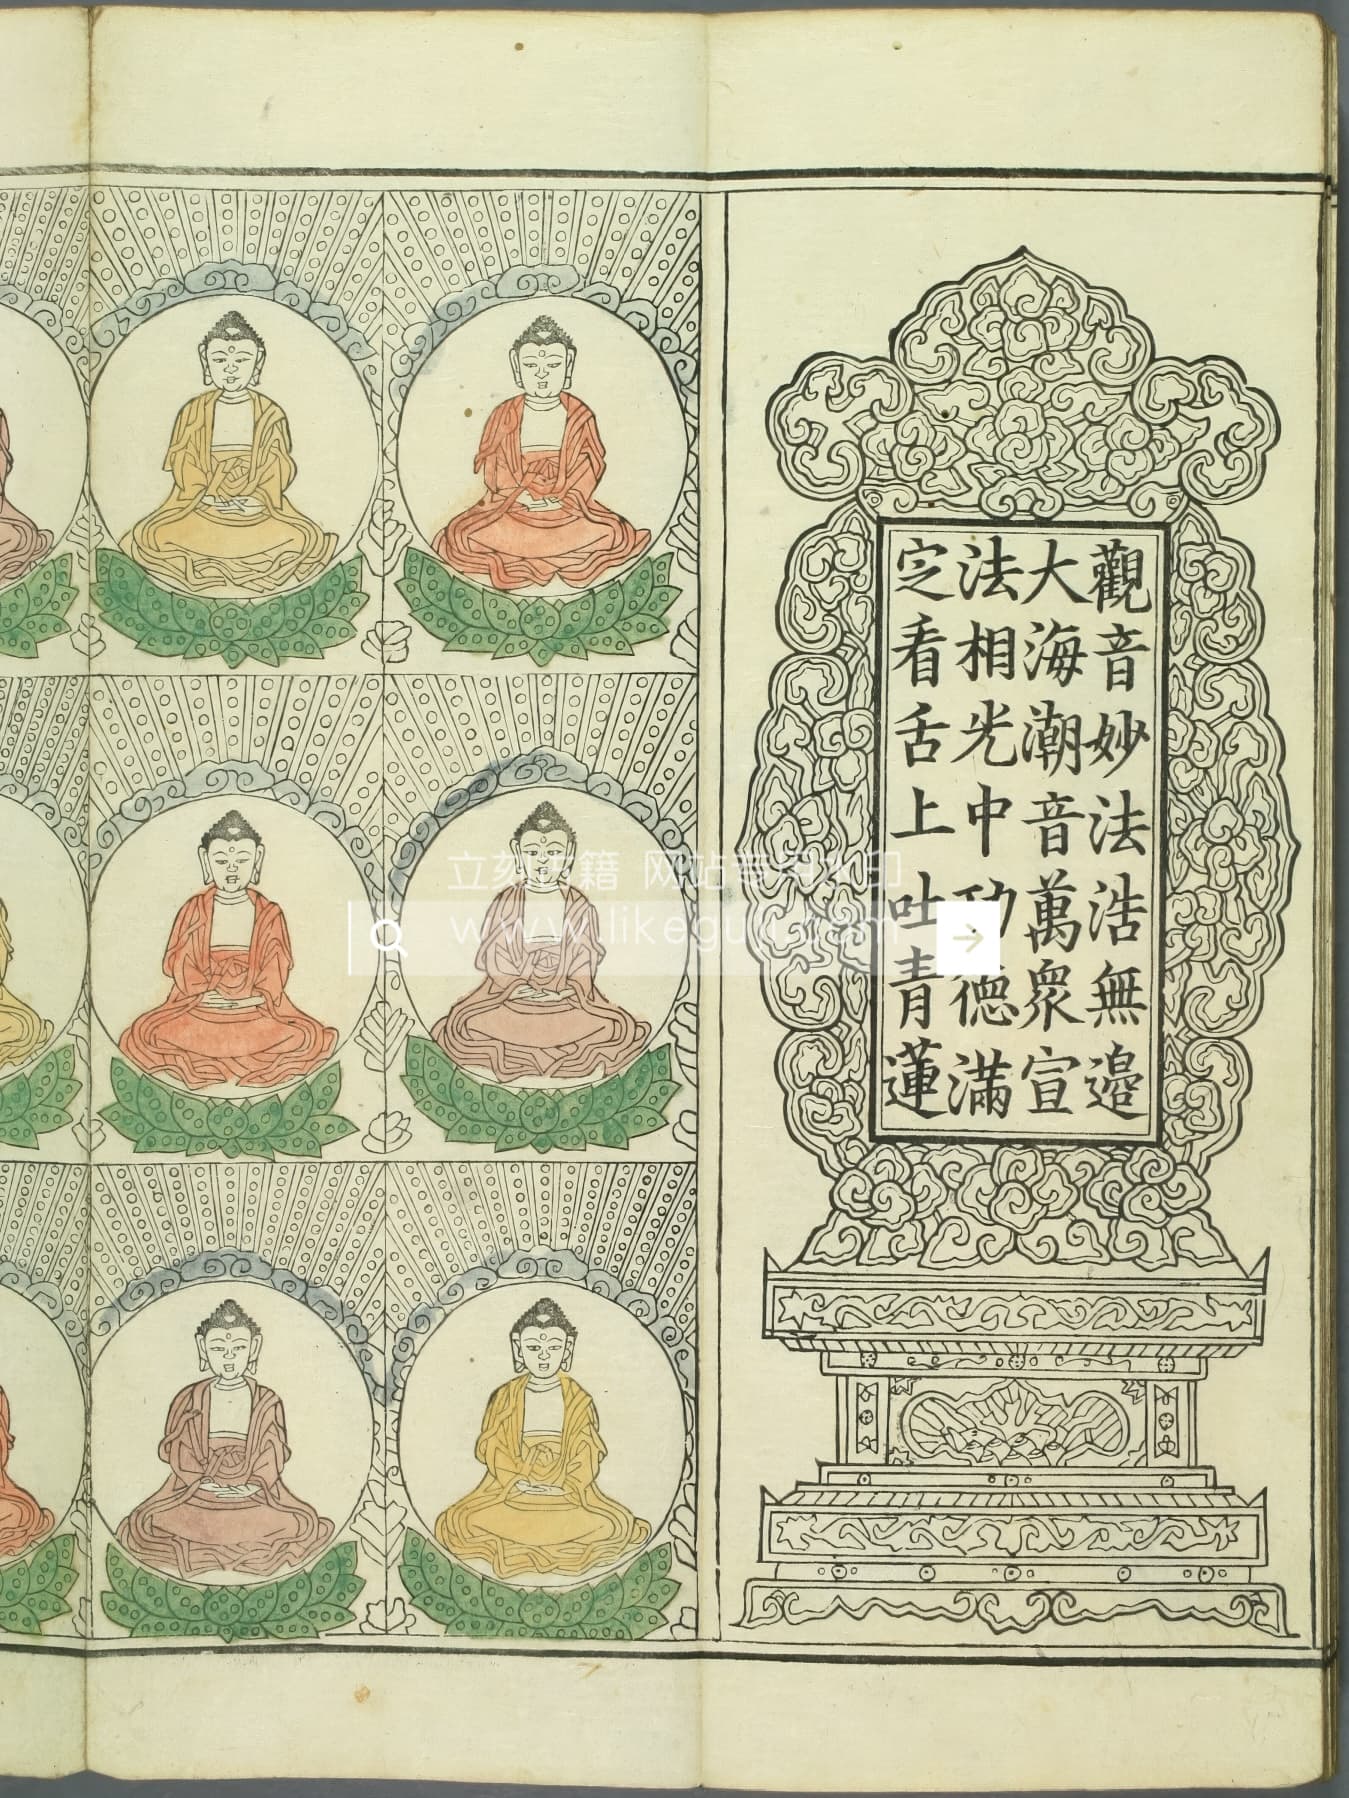 觀音妙法浩無邊
大海潮音萬衆宣
法相光中功德滿
定看舌上吐青蓮
立刻古籍 网站专用水印
www.likeguji.com